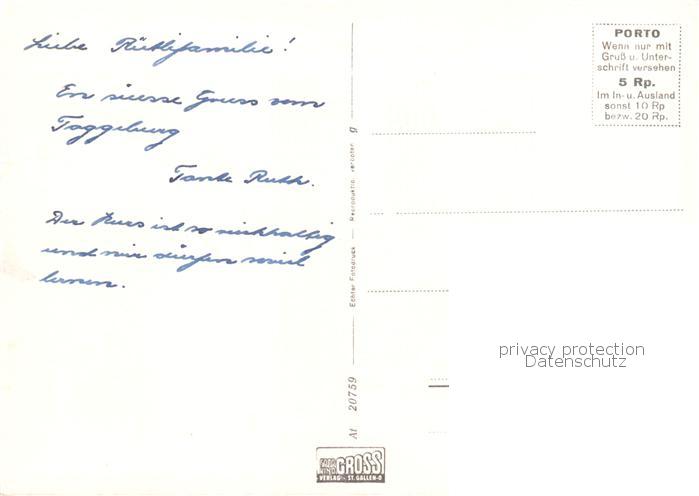 Liebe Rütlifamilie!
En süesse Gruss vom
Toggeburg
Tante Ruth.
Der Kurs ist so reichhaltig
und wir dürfen soviel
lernen.
PORTO
Wenn nur mit
Gruß u. Unter-
schrift versehen
5 Rp.
Im In- u. Ausland
sonst 10 Rp
bezw. 20 Rp.
Echter Fotodruck — Reproduktio verboten g
At 20759
FOTO
GROSS
VERLAG - ST. GALLEN-O
privacy protection
Datenschutz